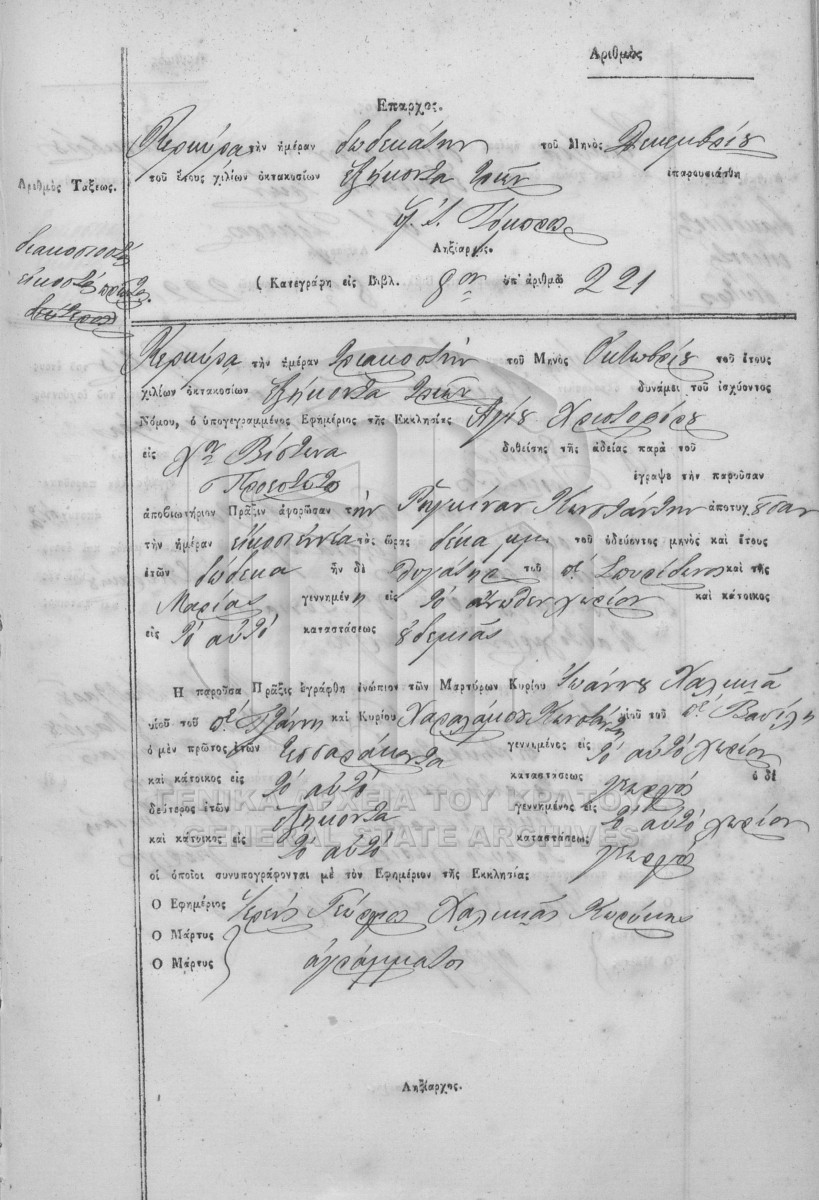 Αριθμὸς
Επαρχος.
Κερκύρα τὴν ἡμέραν δωδεκάτην τοῦ Μηνὸς Δεκεμβρίου
Αριθμὸς Τάξεως.
τοῦ ἔτους χιλίων ὀκτακοσίων ἑξήκοντα τριῶν ἐπαρουσιάσθη
διακοσιοστὴ
εἰκοστὴ πρώτη
Ληξίαρχος.
( Κατεγράφη εἰς Βιβλ. 8ον ὑπ' ἀριθμῶ 221
Κερκύρα τὴν ἡμέραν τριακοστὴν τοῦ Μηνὸς Οκτωβρίου τοῦ ἔτους
χιλίων ὀκτακοσίων ἑξήκοντα τριῶν δυνάμει τοῦ ἰσχύοντος
Νόμου, ὁ ὑπογεγραμμένος Ἐφημέριος τῆς Εκκλησίας Αγίου Χριστοφόρου
εἰς Χον Βίστωνα δοθείσης τῆς ἀδείας παρὰ τοῦ
Πρεσβύτου ἔγραψε τὴν παροῦσαν
ἀποβιωτήριον Πρᾶξιν ἀφορῶσαν τὴν Ρηγκίναν Κωστάντην ἀποτυχοῦσαν
τὴν ἡμέραν εἰκοσιεννέα τὰς ὥρας δέκα μμ. τοῦ ὁδεύοντος μηνὸς καὶ ἔτους
ἐτῶν δώδεκα ἦν δὲ θυγάτηρ τοῦ πὲ Σπυρίδωνος καὶ τῆς
Μαρίας γεννημένη εἰς τὸ ἄνωθεν χωρίον καὶ κάτοικος
εἰς τὸ αὐτὸ καταστάσεως οὐδεμιᾶς
Η παροῦσα Πρᾶξις ἐγράφθη ἐνώπιον τῶν Μαρτύρων Κυρίου Ἰωάννου Χαλικιᾶ
υἱοῦ τοῦ πὲ Τζάννη καὶ Κυρίου Χαραλάμπου Κωστάντη υἱοῦ τοῦ πὲ Βασίλη
ὁ μὲν πρῶτος ἐτῶν τεσσαράκοντα γεννημένος εἰς τὸ αὐτὸ χωρίον
καὶ κάτοικος εἰς τὸ αὐτὸ καταστάσεως γεωργὸς ὁ δὲ
δεύτερος ἐτῶν ἑξήκοντα γεννημένος εἰς τὸ αὐτὸ χωρίον
καὶ κάτοικος εἰς τὸ αὐτὸ καταστάσεως γεωργὸς
οἱ ὁποῖοι συνυπογράφονται μὲ τὸν Εφημέριον τῆς Εκκλησίας
Ο Εφημέριος Ἱερεὺς Γεώργιος Χαλικιᾶς
Ο Μάρτυς
Ο Μάρτυς ἀγράμματοι
Ληξίαρχος.
ΓΕΝΙΚΑ ΑΡΧΕΙΑ ΤΟΥ ΚΡΑΤΟΥΣ
GENERAL STATE ARCHIVES